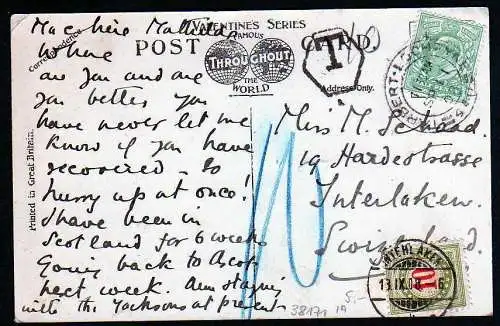 Ma chère Mathilde
Where
are you and are
you better you
have never let me
know if you have
recovered - so
hurry up at once!
I have been in
Scotland for 6 weeks
Going back to Ascot
next week. Am staying
with the Jacksons at present
Correspondence.
Printed in Great Britain.
VALENTINE'S SERIES
FAMOUS
POST CARD.
THROUGHOUT
THE
WORLD
Address Only.
T
10
10
Miss M.
19 Hardestrasse
Interlaken.
Switzerland
TARBERT · LOCH
INTERLAKEN
10
38171 19
5,-